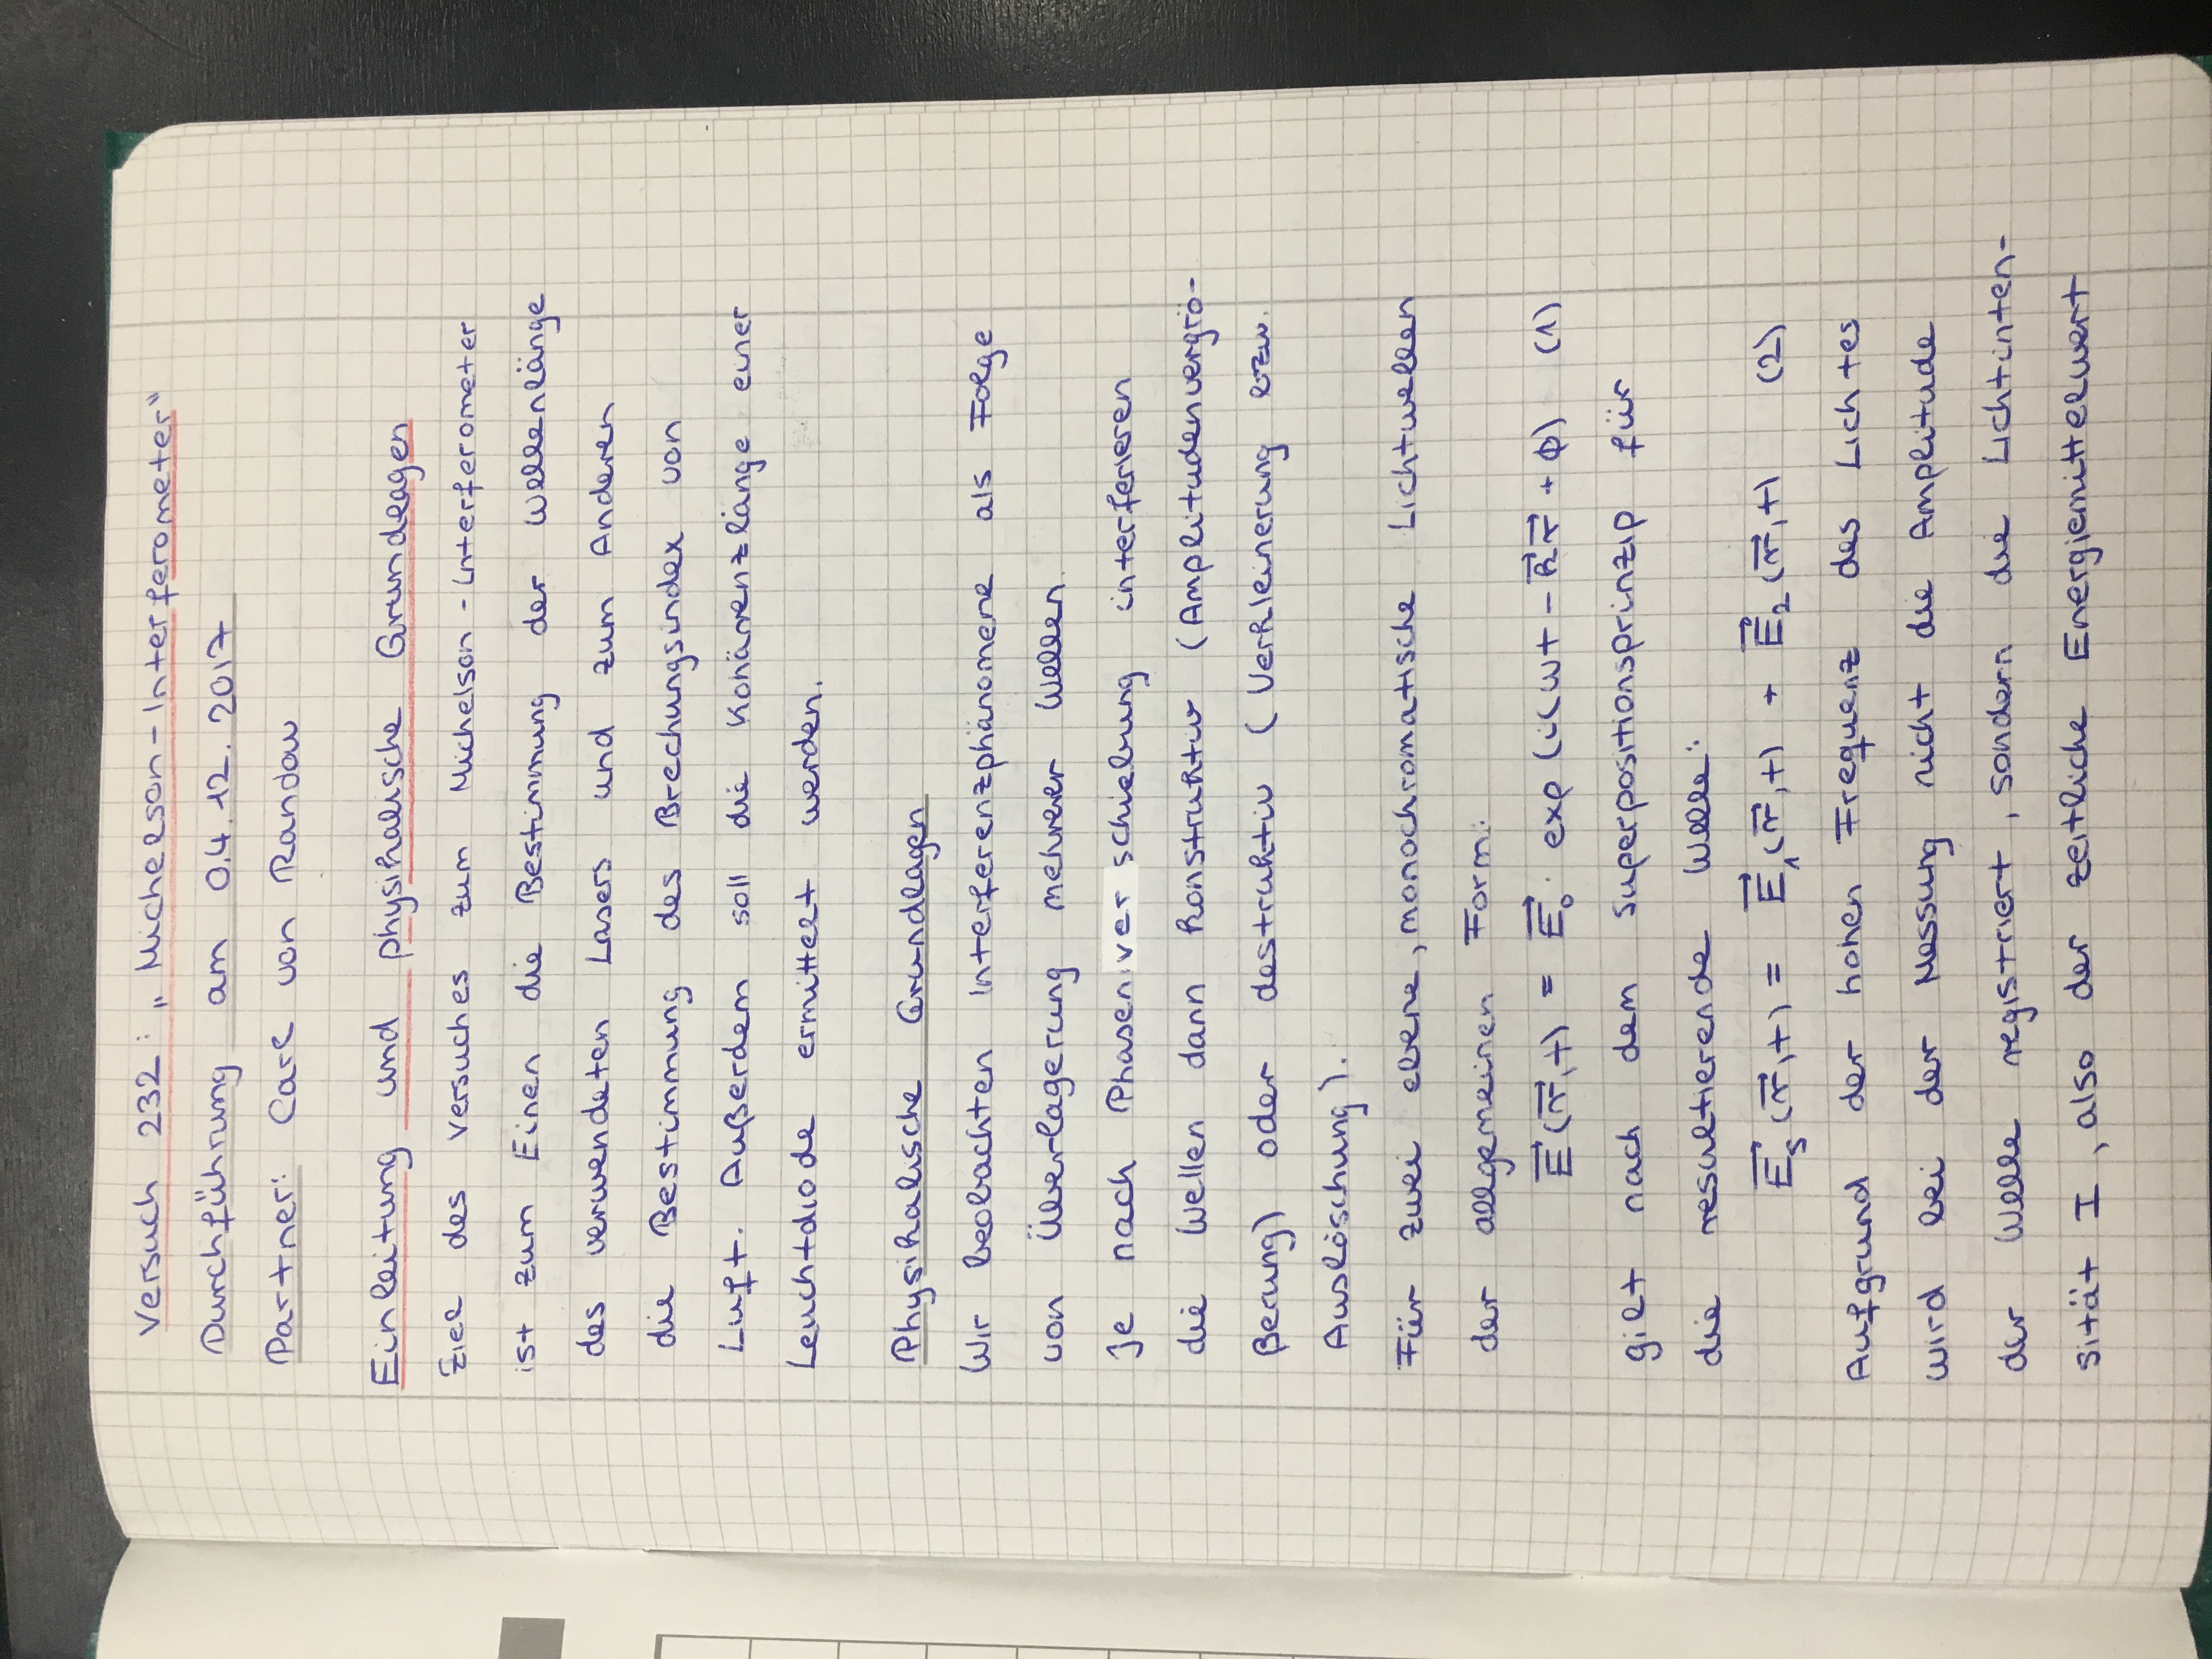 Versuch 232: „Michelson-Interferometer"
Durchführung am 04.12.2017
Partner: Carl von Randow
Einleitung und physikalische Grundlagen
Ziel des Versuches zum Michelson-Interferometer
ist zum Einen die Bestimmung der Wellenlänge
des verwendeten Lasers und zum Anderen
die Bestimmung des Brechungsindex von
Luft. Außerdem soll die Kohärenzlänge einer
Leuchtdiode ermittelt werden.
Physikalische Grundlagen
Wir beobachten Interferenzphänomene als Folge
von Überlagerung mehrerer Wellen.
Je nach Phasenverschiebung interferieren
die Wellen dann konstruktiv (Amplitudenvergrö-
ßerung) oder destruktiv (Verkleinerung bzw.
Auslöschung).
Für zwei ebene, monochromatische Lichtwellen
der allgemeinen Form:
E⃗(r⃗,t) = E⃗₀ · exp(i(ωt - k⃗r⃗ + ϕ) (1)
gilt nach dem Superpositionsprinzip für
die resultierende Welle:
E⃗ₛ(r⃗,t) = E⃗₁(r⃗,t) + E⃗₂(r⃗,t) (2)
Aufgrund der hohen Frequenz des Lichtes
wird bei der Messung nicht die Amplitude
der Welle registriert, sondern die Lichtinten-
sität I, also der zeitliche Energiemittelwert